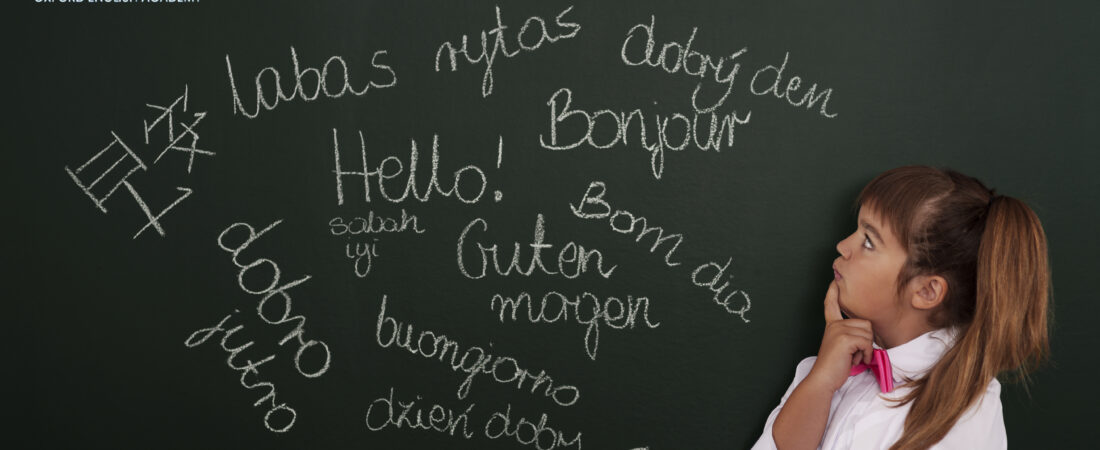 OXFORD ENGLISH ACADEMY
labas rytas
dobrý den
Bonjour
Hello!
sabah
iyi
Bom dia
Guten
morgen
dobro
jutro
buongiorno
dzień dobry